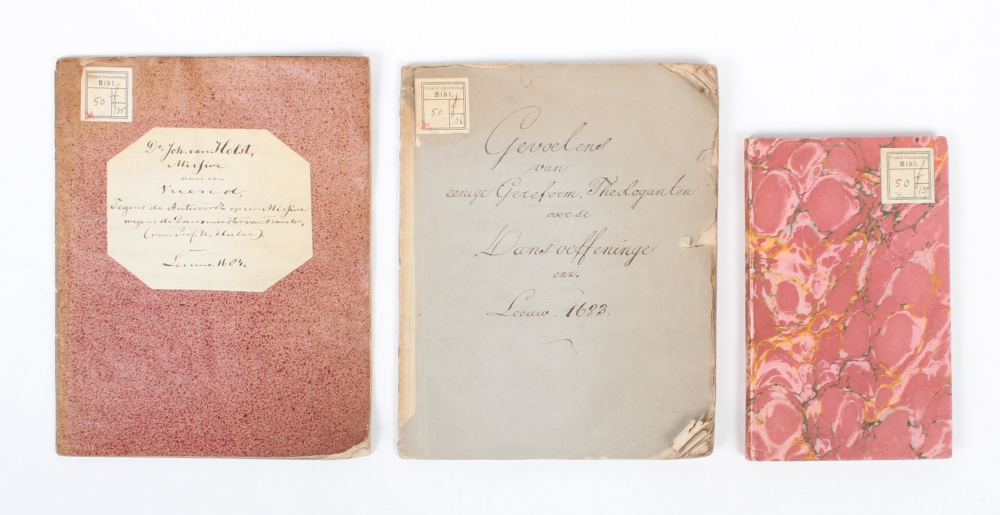 Bibl.
50
Ds. Joh. van Helst,
Missive
aan een
Vriend,
Tegens de Antwoordt op een Missive
wegens de Dansmeester van Franeker,
(van Prof. U. Huber).
Leeuw. 1683.
Bibl.
50
136
Gevoelens
van
eenige Gereform. Theologanten
over de
Dansoeffeninge
enz.
Leeuw. 1683.
Bibl.
50